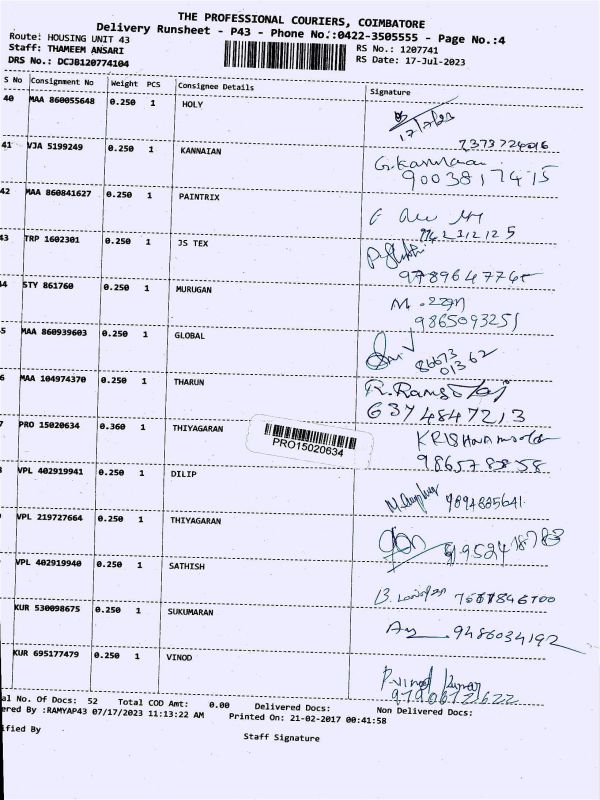 THE PROFESSIONAL COURIERS, COIMBATORE
Delivery Runsheet - P43 - Phone No.:0422-3505555 - Page No.:4
Route: HOUSING UNIT 43
Staff: THAMEEM ANSARI
DRS No.: DCJB120774104
RS No.: 1207741
RS Date: 17-Jul-2023
S No Consignment No Weight PCS Consignee Details Signature
40 MAA 860055648 0.250 1 HOLY
17/7/23
7373724016
41 VJA 5199249 0.250 1 KANNAIAN
G. Kannaian
9003817415
42 MAA 860841627 0.250 1 PAINTRIX
43 TRP 1602301 0.250 1 JS TEX
44 STY 861760 0.250 1 MURUGAN
M.
9865093251
5 MAA 860939603 0.250 1 GLOBAL
86673
01362
6 MAA 104974370 0.250 1 THARUN
6374847213
7 PRO 15020634 0.360 1 THIYAGARAN
PRO15020634
VPL 402919941 0.250 1 DILIP
9894885641
VPL 219727664 0.250 1 THIYAGARAN
9952418783
VPL 402919940 0.250 1 SATHISH
KUR 530098675 0.250 1 SUKUMARAN
9486034192
KUR 695177479 0.250 1 VINOD
P. Vinod Kumar
9790672622
al No. Of Docs: 52 Total COD Amt: 0.00 Delivered Docs: Non Delivered Docs:
ered By :RAMYAP43 07/17/2023 11:13:22 AM Printed On: 21-02-2017 00:41:58
ified By
Staff Signature